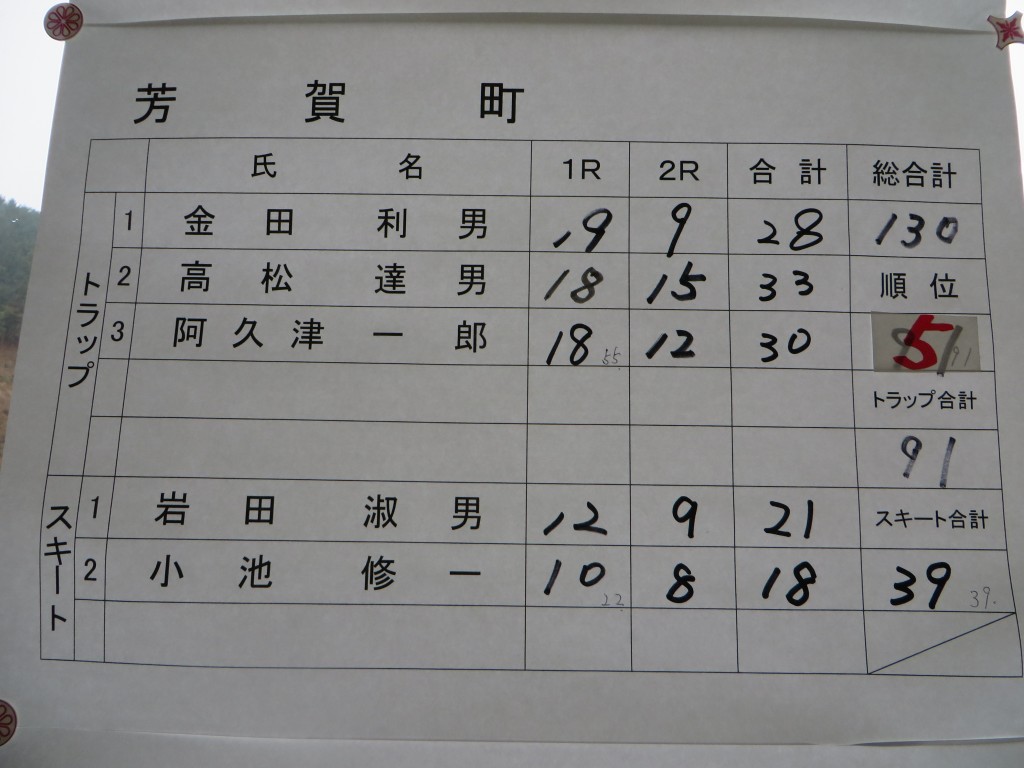 芳賀町
氏名 1R 2R 合計 総合計
トラップ
1 金田利男 19 9 28 130
2 高松達男 18 15 33 順位
3 阿久津一郎 18 55 12 30 5 91
トラップ合計
91
スキート
1 岩田淑男 12 9 21 スキート合計
2 小池修一 10 22 8 18 39 39.